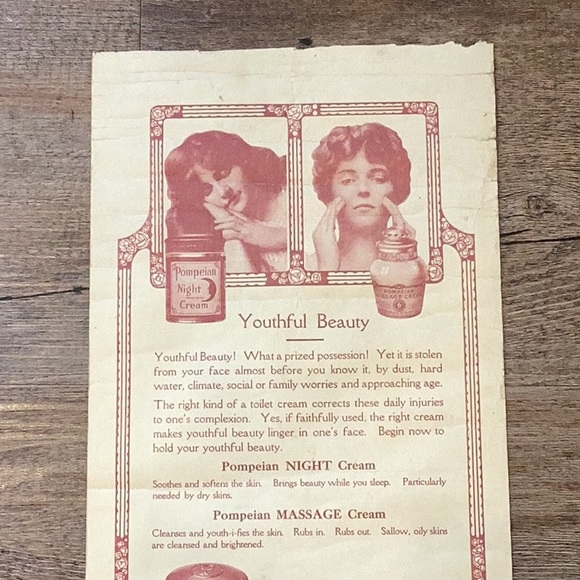 Pompeian
Night
Cream
POMPEIAN
MASSAGE CREAM
Youthful Beauty
Youthful Beauty! What a prized possession! Yet it is stolen
from your face almost before you know it, by dust, hard
water, climate, social or family worries and approaching age.
The right kind of a toilet cream corrects these daily injuries
to one's complexion. Yes, if faithfully used, the right cream
makes youthful beauty linger in one's face. Begin now to
hold your youthful beauty.
Pompeian NIGHT Cream
Soothes and softens the skin. Brings beauty while you sleep. Particularly
needed by dry skins.
Pompeian MASSAGE Cream
Cleanses and youth-i-fies the skin. Rubs in. Rubs out. Sallow, oily skins
are cleansed and brightened.